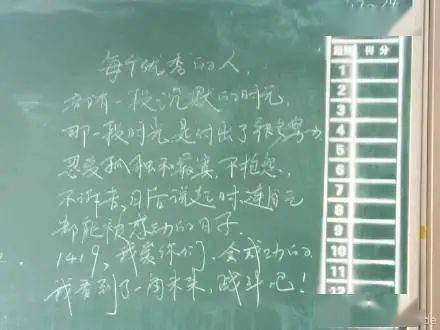 每个优秀的人，
都有一段沉默的时光，
那一段时光是付出了很多努力
忍受孤独和寂寞，不抱怨，
不诉苦，日后说起时，连自己
都能被感动的日子.
1419，我爱你们，会成功的
我看到了一闹未来，战斗吧！
得分
1
2
3
4
5
6
7
8
9
10
11
12